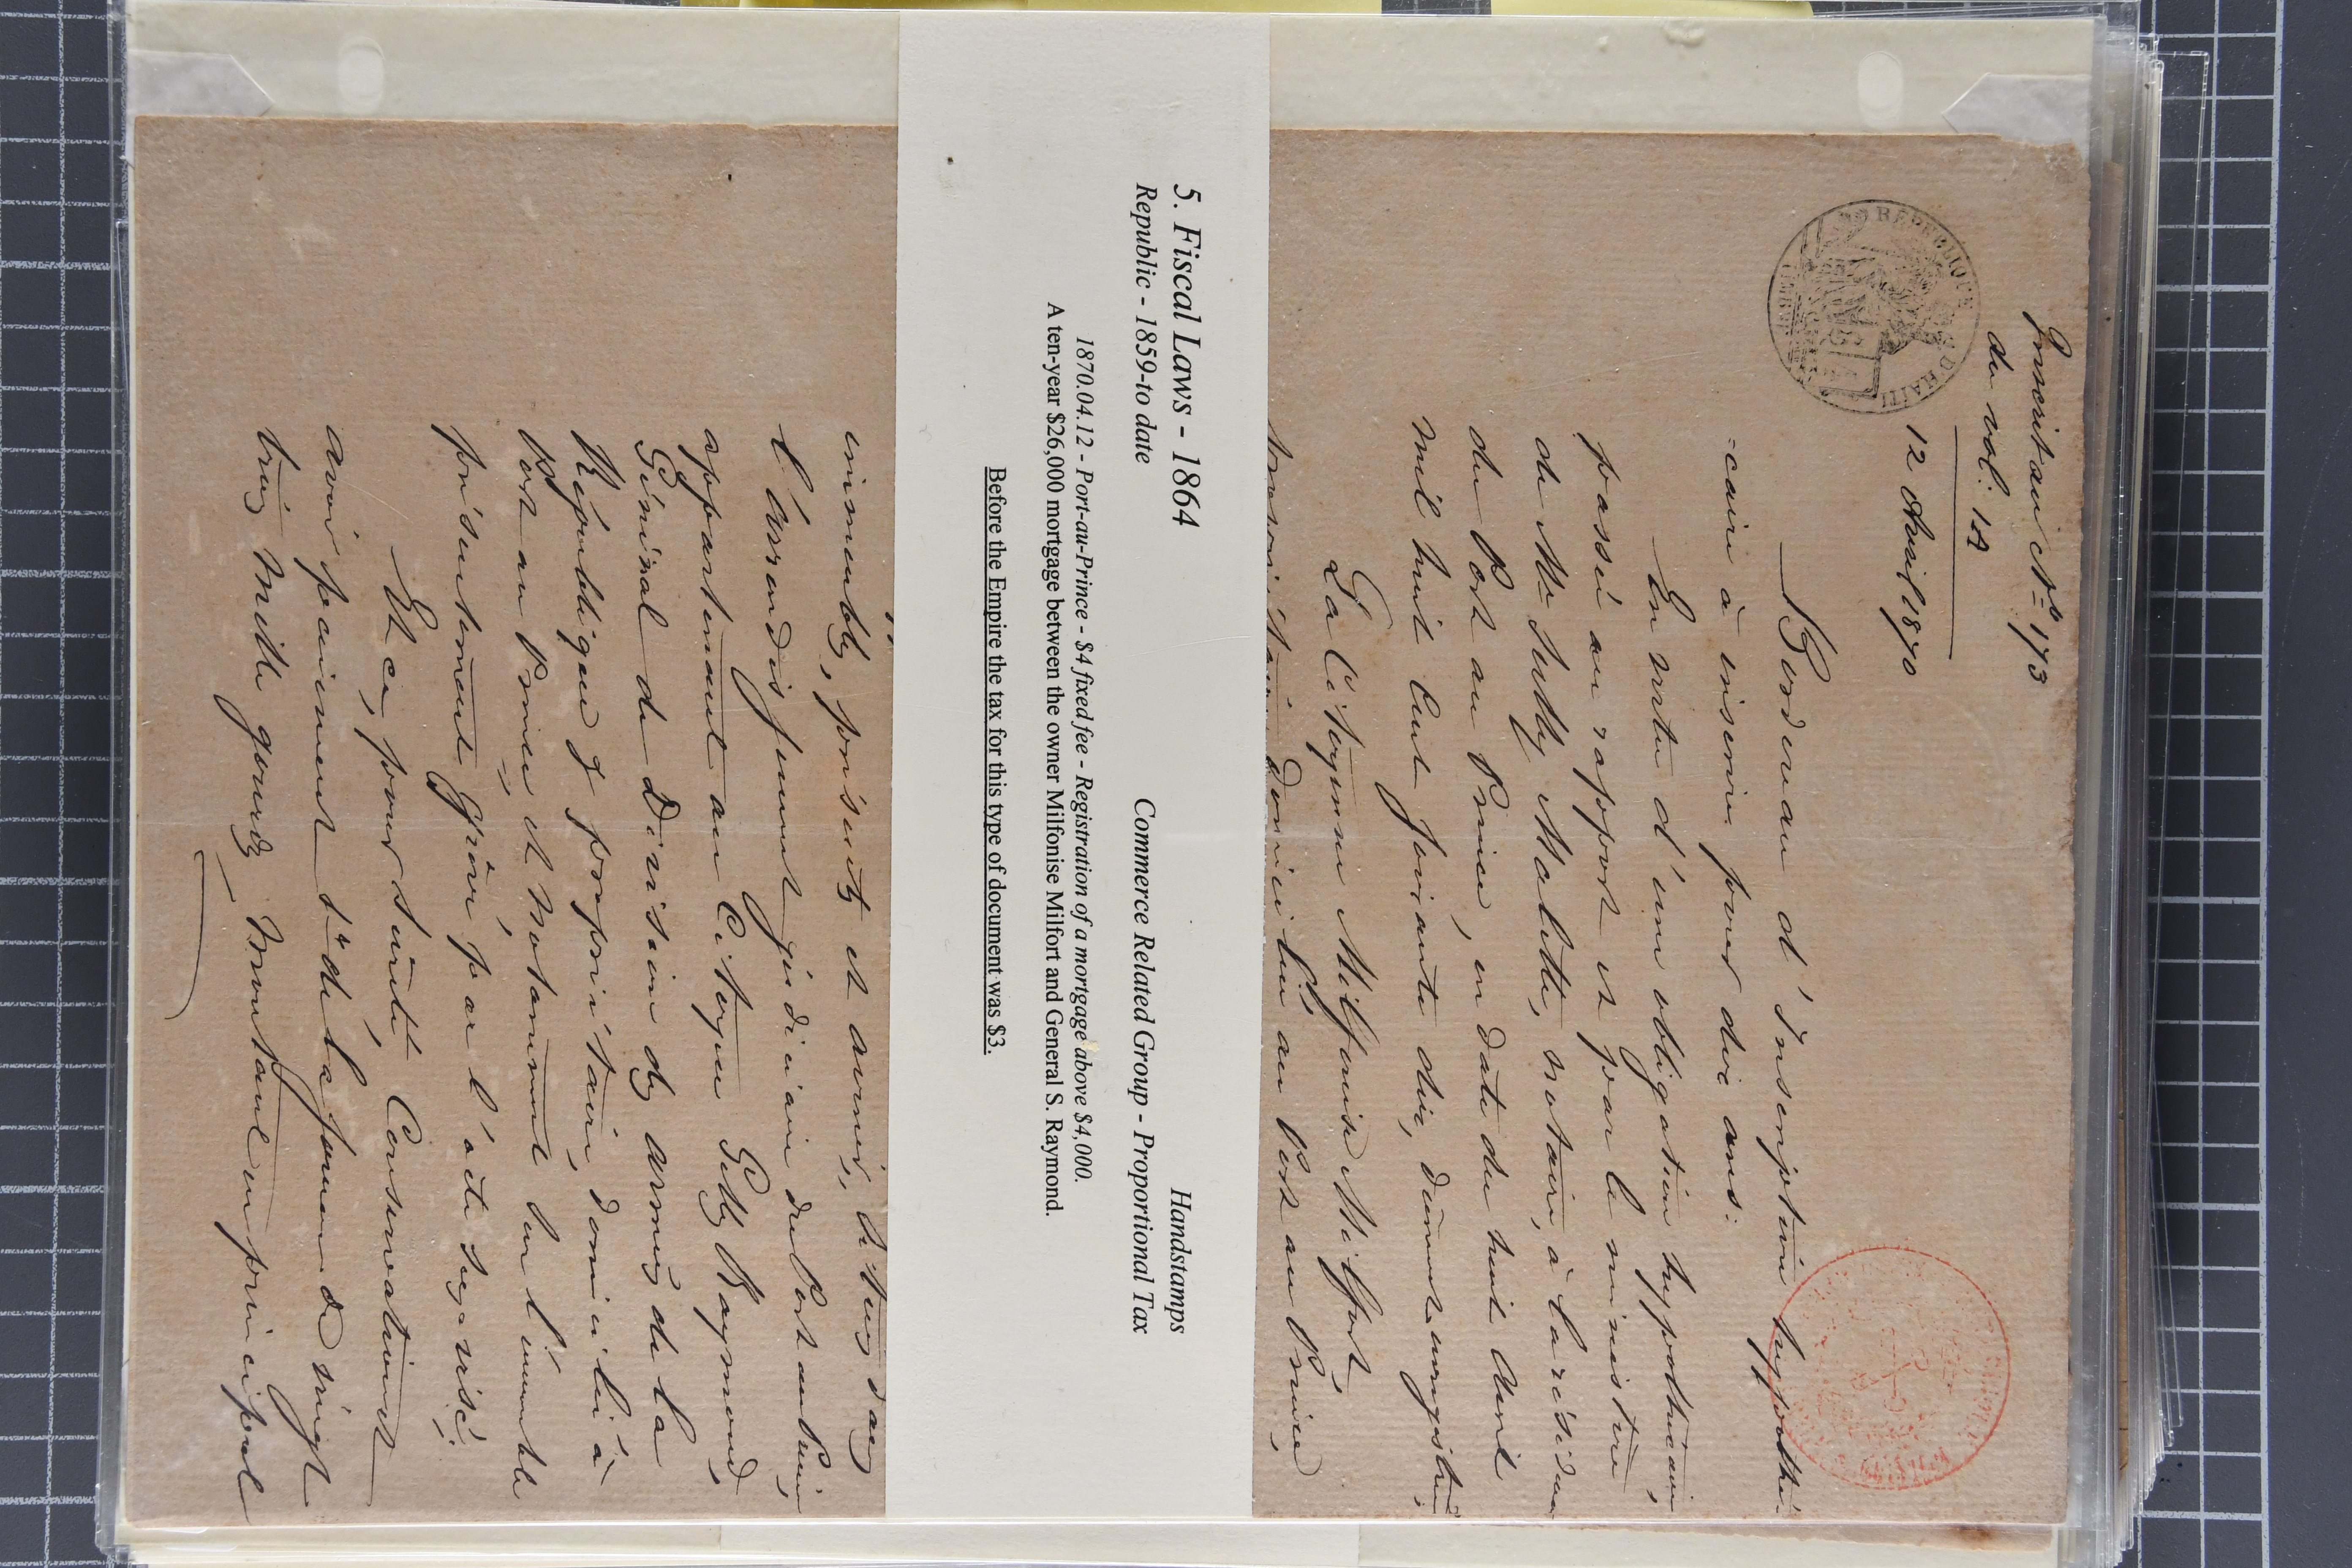 Inscrit au N° 173
du vol: 14
12 Avril 1870
RÉPUBLIQUE D'HAITI
Bordereau d'Inscription hypothé-
-caire à inscrire pour dix ans:
En vertu d'une obligation hypothécaire,
passée au rapport et par le ministère
de Me Sully Malette, notaire, à la résidence
du Port au Prince, en date du huit Avril
mil huit cent soixante dix, dûment enregistrée,
La Citoyenne Milfonise Milfort,
propriétaire, domiciliée au Port au Prince,
5. Fiscal Laws - 1864 Handstamps
Republic - 1859-to date Commerce Related Group - Proportional Tax
1870.04.12 - Port-au-Prince - $4 fixed fee - Registration of a mortgage above $4,000.
A ten-year $26,000 mortgage between the owner Milfonise Milfort and General S. Raymond.
Before the Empire the tax for this type of document was $3.
immeubles, présents et avenir, situés dans
l'arrondissement judiciaire du Port au Prince,
appartenant au Citoyen Raymond,
Général de Division des armées de la
République & propriétaire, domicilié à
Port au Prince et notamment sur l'immeuble
présentement grévé par l'acte susvisé.
Et ce, pour sûreté, Conservation et
avoir paiement 1° de la somme de vingt
trois mille gourdes, montant en principal